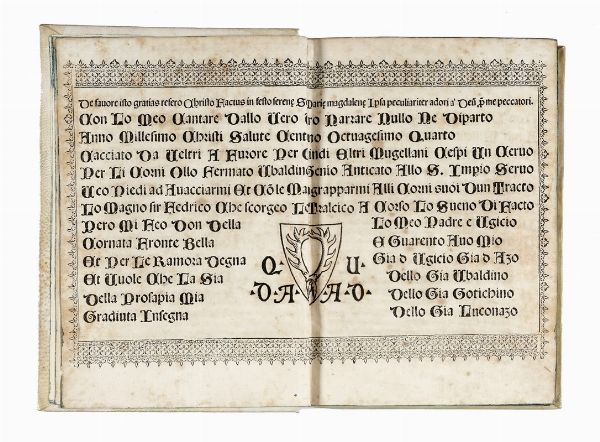 De favore isto gratias refero Christo Factus in festo serenę S. Marię magdalenę Ipsa peculiariter adori a' Deū p̄ me peccatori.
Con Lo Meo Cantare Dallo Vero Narrare Nullo Ne Diparto
Anno Millesimo Christi Salute Cento Octuagesimo Quarto
Cacciato Da Veltri A Furore Per Eltri Mugellani Cespi Un Cervo
Per Li Corni Ollo Fermato Ubaldin Genio Anticato Allo S. Impio Servo
Uco Piedi ad Avacciarmi Et Cō le Mai grapparmi Alli Corni suoi Dun Tracto
Lo Magno sir Fedrico Che scorgeo Le Tralcico A Corso Lo Sueno Di Facto
Pero Mi Feo Don Della
Cornata Fronte Bella
Et Per Le Ramora Degna
Et Vuole Che La Sia
Della Prosapia Mia
Gradiuta Insegna
Q. U.
D. A. A. D.
Lo Meo Padre e Ugicio
E Guarento Avo Mio
Gia d Ugicio Gia d Azo
Dello Gia Ubaldino
Dello Gia Gotichino
Dello Gia Luconazo